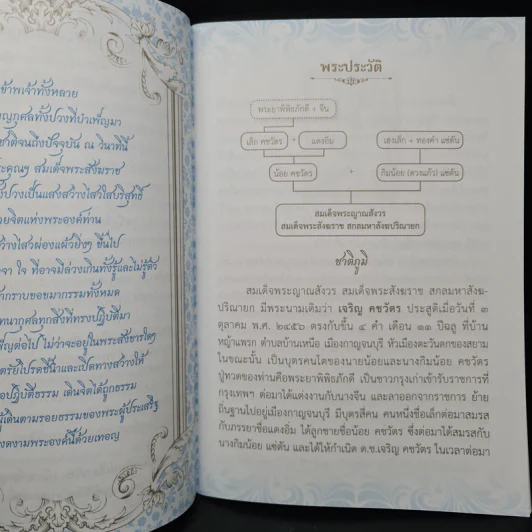 ข้าพเจ้าทั้งหลาย
บุญกุศลทั้งปวงที่บำเพ็ญมา
ชาติจนถึงปัจจุบัน ณ วินาทีนี้
ะคุณฯ สมเด็จพระสังฆราช
ปวงเป็นแสงสว่างไสวใสบริสุทธิ์
วยจิตแห่งพระองค์ท่าน
ว่างไสวผ่องแผ้วยิ่งๆ ขึ้นไป
จา ใจ ที่อาจมีล่วงเกินทั้งรู้และไม่รู้ตัว
ากราบขอขมากรรมทั้งหมด
ทนากุศลทุกสิ่งที่ทรงปฏิบัติมา
พ็ญต่อไป ไม่ว่าจะอยู่ในพระสังขารใดๆ
ตรัยโปรดชี้นำและเปิดทางสว่างให้
อปฏิบัติธรรม เดินจิตได้ถูกธรรม
เดินตามรอยธรรมของพระผู้ประเสริฐ
งดงามพระองค์นี้ด้วยเทอญ
พระประวัติ
พระยาพิพิธภักดี + จีน
เล็ก คชวัตร + แดงอิ่ม
เฮงเล็ก + ทองคำ แซ่ตัน
น้อย คชวัตร + กิมน้อย (ดวงแก้ว) แซ่ตัน
สมเด็จพระญาณสังวร
สมเด็จพระสังฆราช สกลมหาสังฆปริณายก
ชาติภูมิ
สมเด็จพระญาณสังวร สมเด็จพระสังฆราช สกลมหาสังฆ-
ปริณายก มีพระนามเดิมว่า เจริญ คชวัตร ประสูติเมื่อวันที่ ๓
ตุลาคม พ.ศ. ๒๔๕๖ ตรงกับขึ้น ๔ ค่ำ เดือน ๑๑ ปีฉลู ที่บ้าน
หญ้าแพรก ตำบลบ้านเหนือ เมืองกาญจนบุรี หัวเมืองตะวันตกของสยาม
ในขณะนั้น เป็นบุตรคนโตของนายน้อยและนางกิมน้อย คชวัตร
ปู่ทวดของท่านคือพระยาพิพิธภักดี เป็นชาวกรุงเก่าเข้ารับราชการที่
กรุงเทพฯ ต่อมาได้แต่งงานกับนางจีน และลาออกจากราชการ ย้าย
ถิ่นฐานไปอยู่เมืองกาญจนบุรี มีบุตรสี่คน คนหนึ่งชื่อเล็กต่อมาสมรส
กับภรรยาชื่อแดงอิ่ม ได้ลูกชายชื่อน้อย คชวัตร ซึ่งต่อมาได้สมรสกับ
นางกิมน้อย แซ่ตัน และได้ให้กำเนิด ด.ช.เจริญ คชวัตร ในเวลาต่อมา